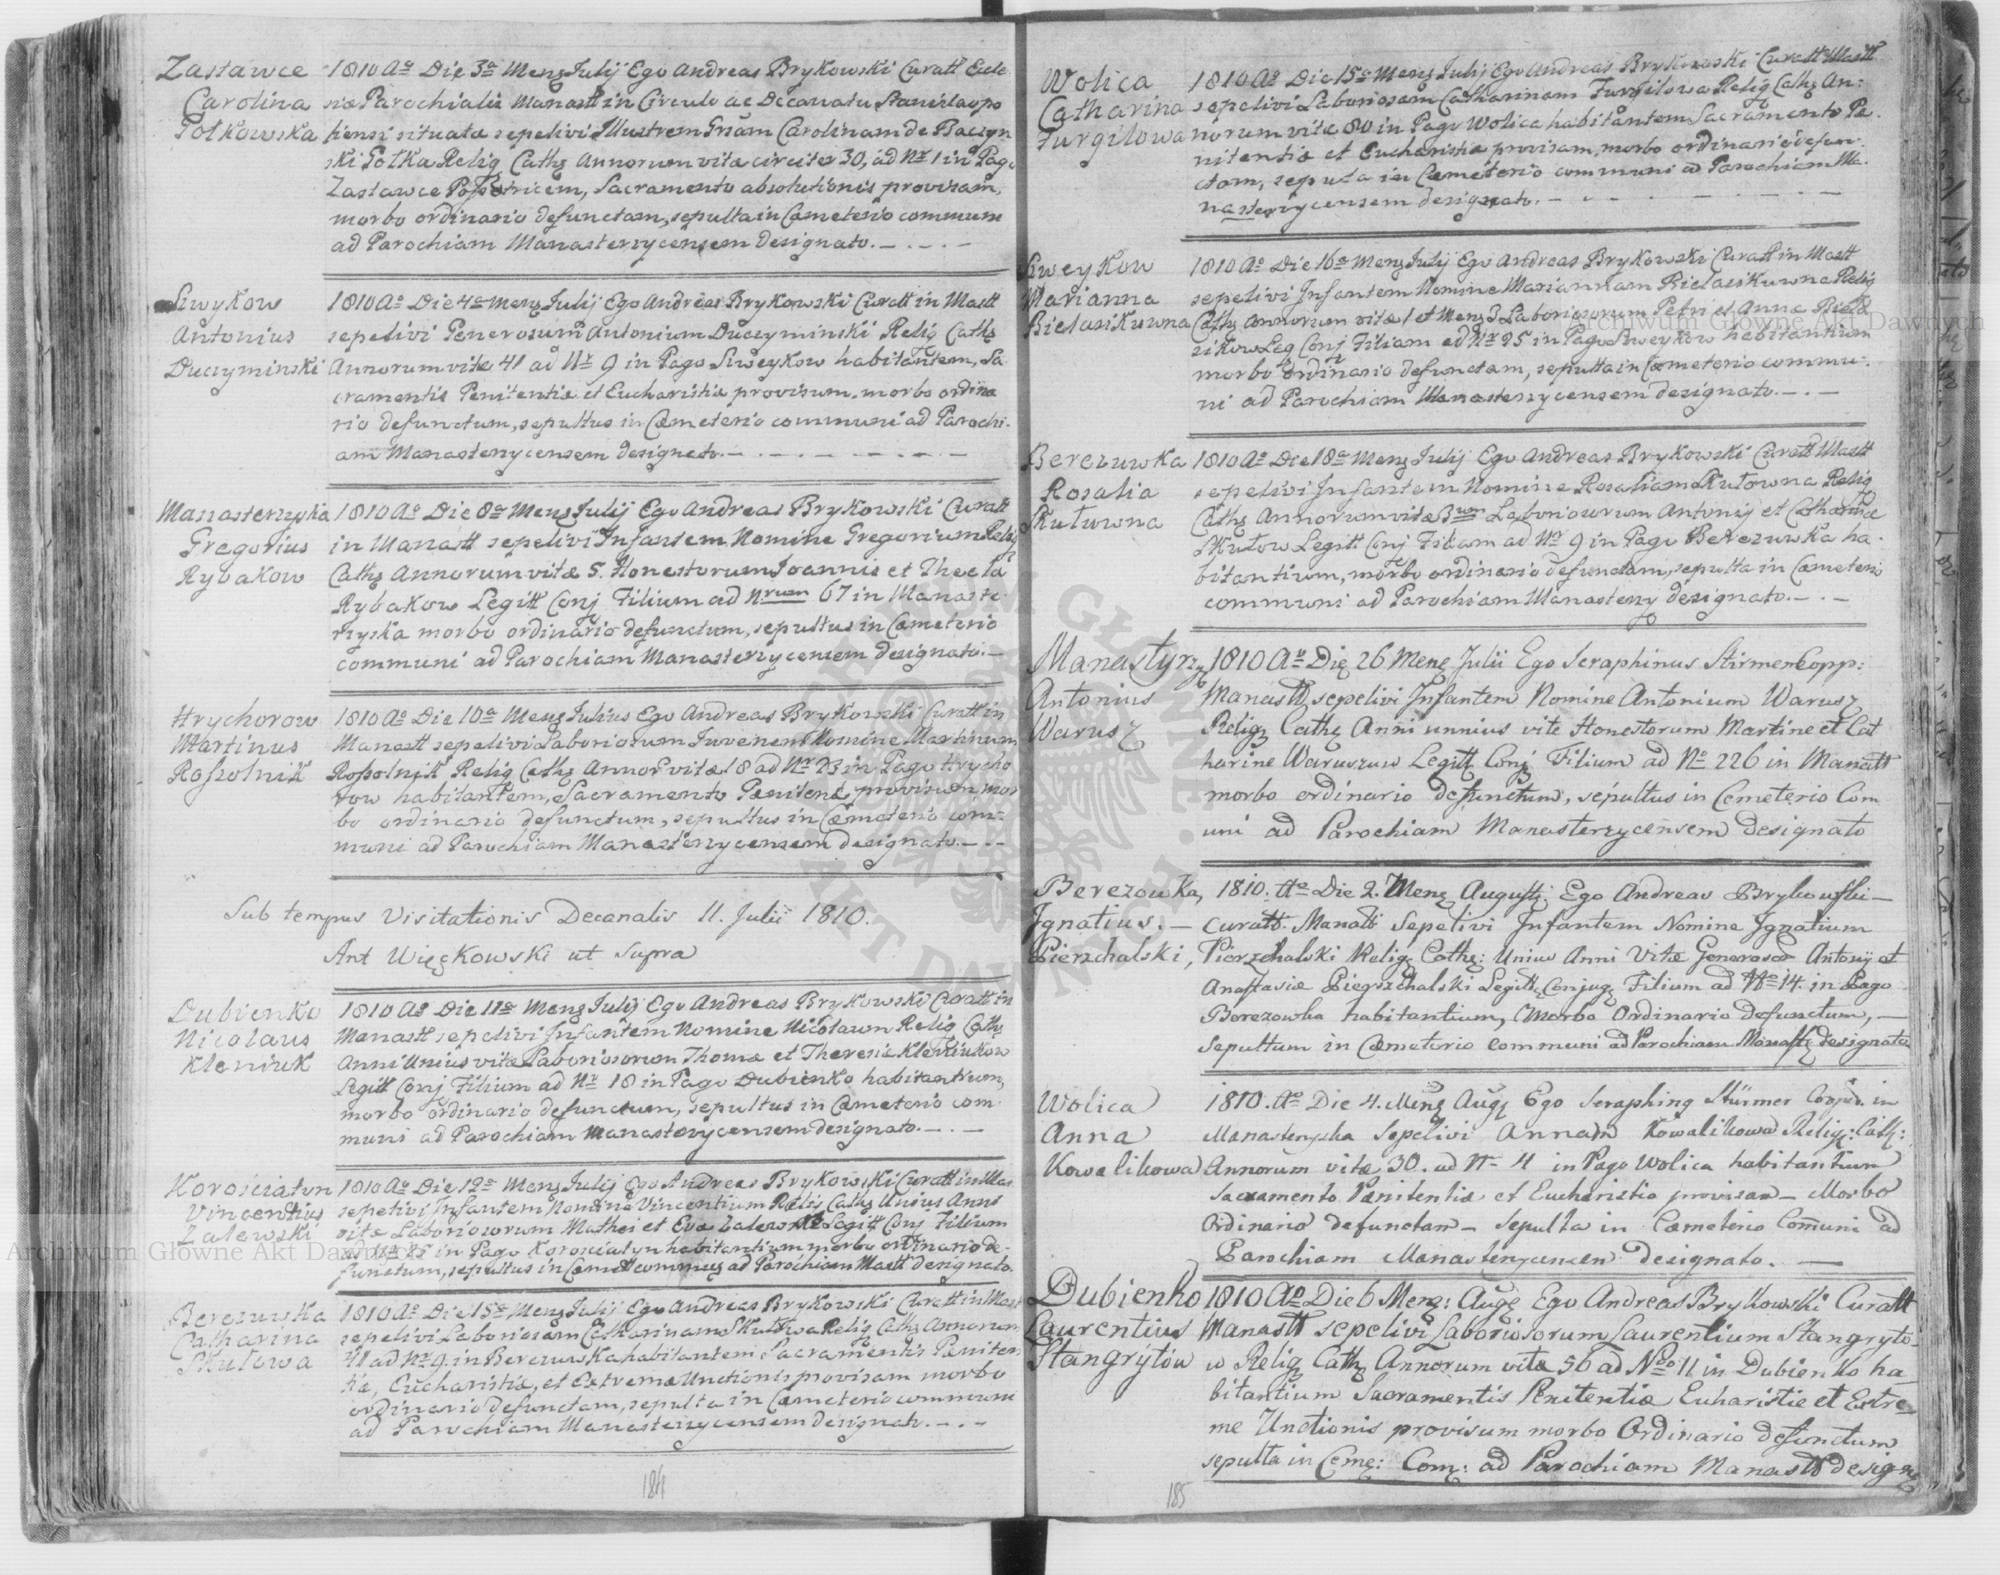 Zastawce
Carolina
Gołkowska
1810 Ao Die 3a Mens Julij Ego Andreas Brykowski Curatt Eccle
siæ Parochialis Manastt in Circulo ac Decanatu Stanislaopo
liensi situatæ sepelivi Illustrem Carolinam de Baczyn
ski Gołka Relig Cath Annorum vitæ circiter 30, ad Nr 1 in Pago
Zastawce Sacramento absolutionis provisam,
morbo ordinario defunctam, sepulta in Cæmeterio communi
ad Parochiam Manasterzycensem designato.
Szwykow
Antonius
Duczyminski
1810 Ao Die 4a Mens Julij Ego Andreas Brykowski Curatt in Mastt
sepelivi Generosum Antonium Duczyminskii Relig Cath
Annorum vitæ 41 ad Nr 9 in Pago Szweykow habitantem, Sa
cramentis Penitentiæ et Eucharistiæ provisum, morbo ordina
rio defunctum, sepultus in Cæmeterio communi ad Parochi-
am Manasterzycensem designato.
Manasterzyska
Gregorius
Rybakow
1810 Ao Die 8a Mens Julij Ego Andreas Brykowski Curatt
in Manastt sepelivi Infantem Nomine Gregorium Relig
Cath Annorum vitæ 5. Honestorum Joannis et Thecla
Rybakow Legitt Conj Filium ad Nrum 67 in Manaste-
rzyska morbo ordinario defunctum, sepultus in Cæmeterio
communi ad Parochiam Manasterzycensem designato.
Hrychorow
Martinus
Rossolnik
1810 Ao Die 10a Mens Julius Ego Andreas Brykowski Curatt in
Manastt sepelivi Laboriosum Juvenem Nomine Martinum
Rossolnik Relig Cath Annor vitæ 18 ad Nr 23 in Pago Hrycho
row habitantem, Sacramento Pænitent provisum mor
bo ordinario defunctum, sepultus in Cæmeterio com-
muni ad Parochiam Manasterzycensem designato.
Sub tempus Visitationis Decanalis 11. Julii 1810.
Ant Więckowski ut Supra
Dubienko
Nicolaus
Kleniuk
1810 Ao Die 11a Mens Julij Ego Andreas Brykowski Curatt in
Manastt sepelivi Infantem Nomine Nicolaum Relig Cath
Anni Unius vitæ Laboriosorum Thomæ et Theresiæ Kleniukow
Legitt Conj Filium ad Nr 18 in Pago Dubienko habitantium,
morbo ordinario defunctum, sepultus in Cæmeterio com-
muni ad Parochiam Manasterzycensem designato.
Korosciatyn
Vincentius
Zalewski
1810 Ao Die 12a Mens Julij Ego Andreas Brykowski Curatt in Mas
sepelivi Infantem Nomine Vincentium Relig Cath Unius Anni
vitæ Laboriosorum Mathei et Eva Legitt Conj Filium
ad Nr 25 in Pago Korosciatyn habitantium morbo ordinario de-
functum, sepultus in Cæmet ad Parochiam Mastt designato.
Berezuwka
Catharina
Skutowa
1810 Ao Die 15a Mens Julij Ego Andreas Brykowski Curatt in Mast
sepelivi Laboriosam Catharinam Skutowa Relig Cath Annorum
41 ad Nr 9 in Berezuwka habitantem Sacramentis Pæniten
tiæ, Eucharistiæ, et Extremæ Unctionis provisam morbo
ordinario defunctam, sepulta in Cæmeterio communi
ad Parochiam Manasterzycensem designato.
184
Wolica
Catharina
Furgilowa
1810 Ao Die 15a Mens Julij Ego Andreas Brykowski Curatt Mastt
sepelivi Laboriosam Catharinam Furgilowa Relig Cath An:
norum vitæ 80 in Pago Wolica habitantem Sacramento Pe-
nitentiæ et Eucharistiæ provisam, morbo ordinario defun-
ctam, sepulta in Cæmeterio communi ad Parochiam Ma-
nasterzycensem designato.
Szweykow
Marianna
Bielasikuwna
1810 Ao Die 16a Mens Julij Ego Andreas Brykowski Curatt in Mastt
sepelivi Infantem Nomine Mariannam Bielasikuwna Relig
Cath Annorum vitæ 1 et Mens 3 Laboriosorum Petri et Anna Biela
sikow Leg Conj Filiam ad Nr 25 in Pago Szweykow habitantium
morbo ordinario defunctam, sepulta in Cæmeterio commu-
ni ad Parochiam Manasterzycensem designato.
Berezuwka
Rosalia
Skutuwna
1810 Ao Die 18a Mens Julij Ego Andreas Brykowski Curatt Mastt
sepelivi Infantem Nomine Rosaliam Skutowna Relig
Cath Annorum vitæ 3um Laboriosorum Antonij et Catharinæ
Skutow Legitt Conj Filiam ad Nr 9 in Pago Berezuwka ha-
bitantium, morbo ordinario defunctam, sepulta in Cæmeterio
communi ad Parochiam Manasterzy designato.
Manastyrz
Antonius
Warusz
1810 Ao Die 26 Mens Julii Ego Seraphinus Stirmer Copp:
Manastt sepelivi Infantem Nomine Antonium Warusz
Relig Cath Anni unnius vite Honestorum Martine et Cat
harine Waruszuw Legitt Conj Filium ad No 226 in Manastt
morbo ordinario defunctum, sepultus in Cemeterio Com
uni ad Parochiam Manasterzycensem designato
Berezowka,
Ignatius.
Pierzchalski,
1810. Ao Die 2. Mens Augusti Ego Andreas Brykowski
Curatt. Manastt Sepelivi Infantem Nomine Ignatium
Pierzchalski Relig Cath: Unius Anni Vitæ Generosor Antonij et
Anastasiæ Piegrzchalski Legitt Conjug Filium ad No 14. in Pago
Berezowka habitantium, Morbo Ordinario defunctum,
Sepultum in Cæmeterio communi ad Parochiam Manast designato
Wolica
Anna
Kowalikowa
1810. Ao Die 4. Mens Aug Ego Seraphing Stürmer Coopr. in
Manasterzyska Sepelivi Annam Kowalikowa Relig: Cath:
Annorum vitæ 30. ad Nr 4 in Pago Wolica habitantium
Sacramento Pænitentiæ et Eucharistio provisam Morbo
Ordinario defunctam Sepulta in Cæmeterio Comuni ad
Parochiam Manasterzycensem designato.
Dubienko
Laurentius
Stangrytów
1810 Ao Die 6 Mens: Aug Ego Andreas Brykowski Curatt
Manastt sepelivi Laboriosorum Laurentium Stangryto
w Relig Cath Annorum vitæ 56 ad Nro 11 in Dubienko ha-
bitantium Sacramentis Penitentiæ Eucharistie et Extre-
me Unctionis provisum morbo Ordinario defunctum
sepulta in Ceme: Com: ad Parochiam Manastt design
185
Archiwum Główne Akt Dawnych
Archiwum Główne Akt Dawnych